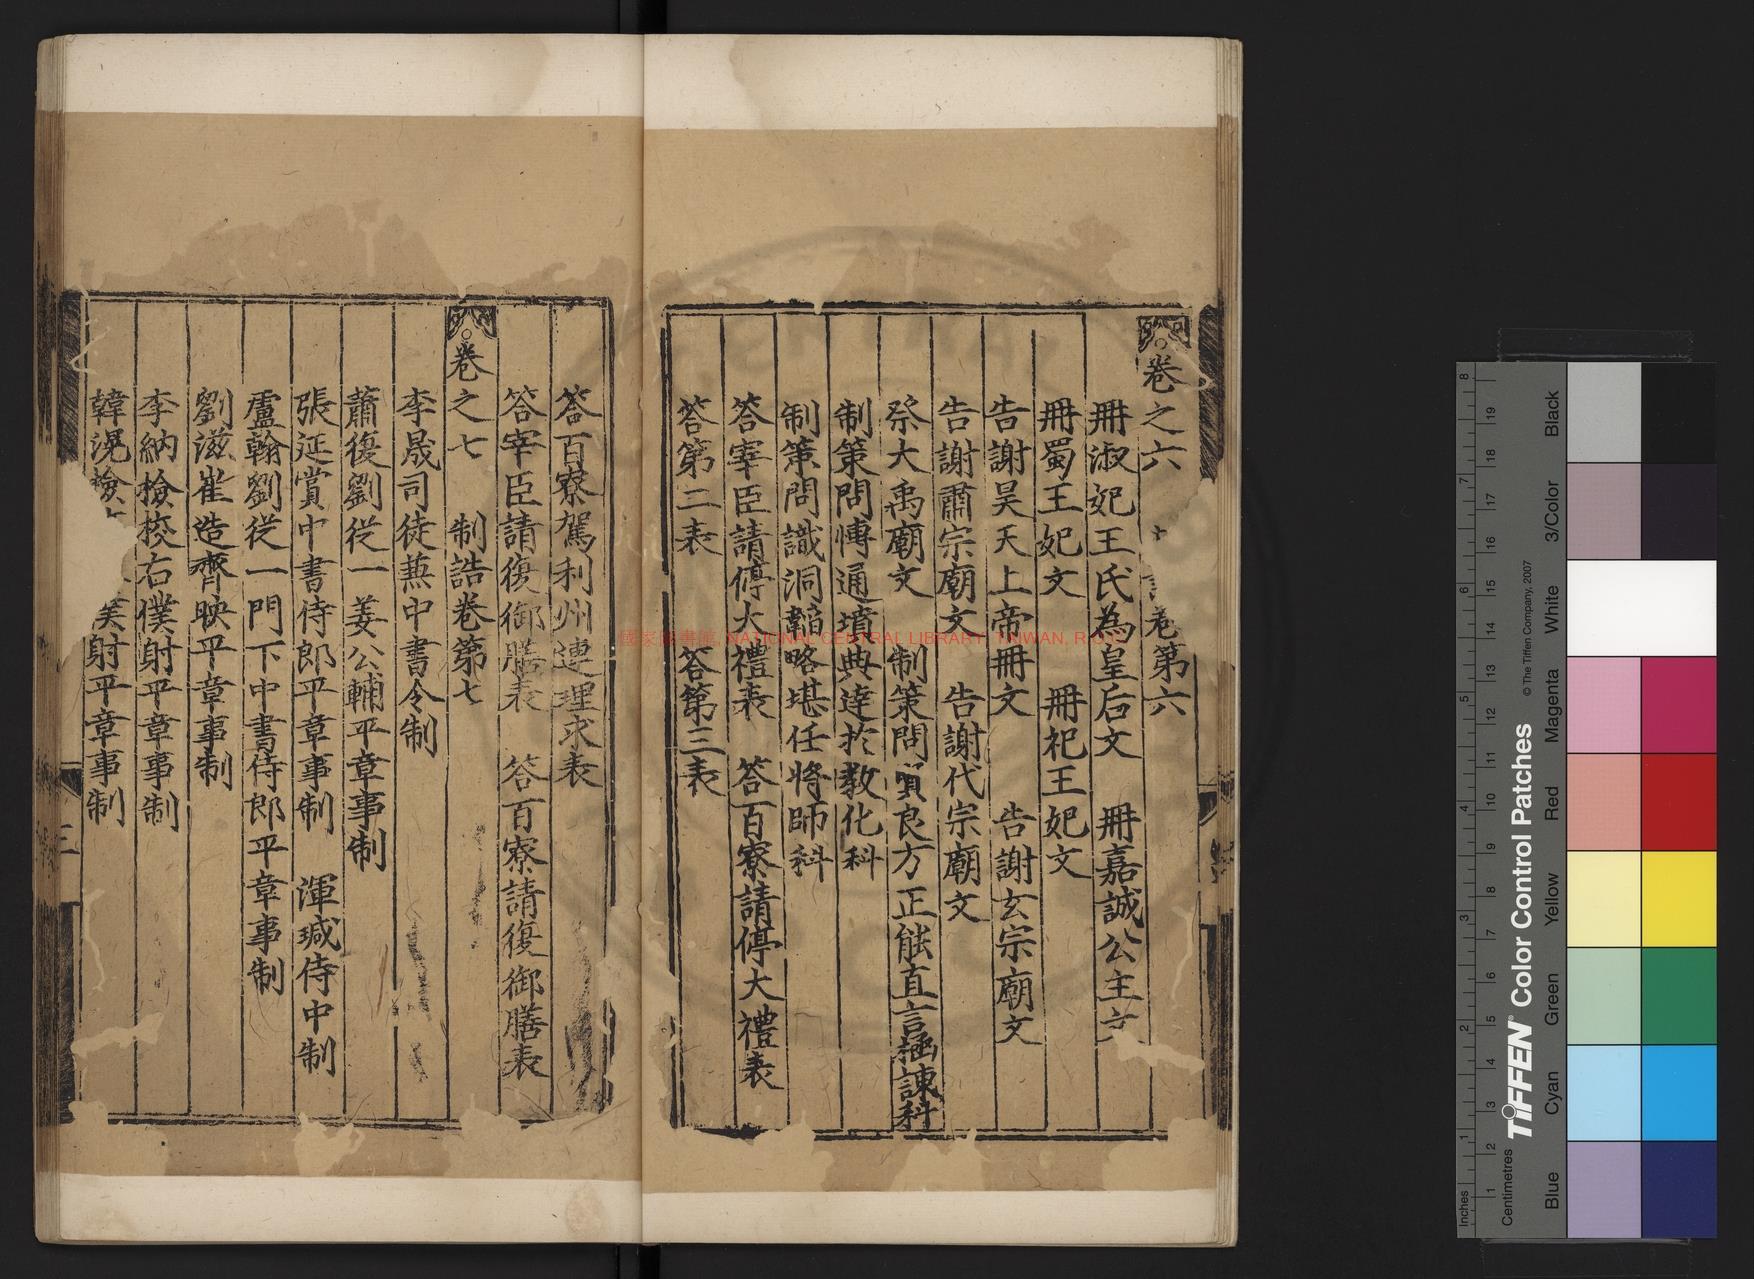 卷之六 卷第六
冊淑妃王氏為皇后文 冊嘉誠公主文
冊蜀王妃文 冊祀王妃文
告謝昊天上帝冊文 告謝玄宗廟文
告謝肅宗廟文 告謝代宗廟文
祭大禹廟文 制策問賢良方正能直言極諫科
制策問博通墳典達於教化科
制策問識洞韜略堪任將師科
答宰臣請停大禮表 答百寮請停大禮表
答第二表 答第三表
答百寮駕利州連理求表
答宰臣請復御膳表 答百寮請復御膳表
卷之七 制誥卷第七
李晟司徒蕪中書令制
蕭復劉從一姜公輔平章事制
張延賞中書侍郎平章事制 渾瑊侍中制
盧翰劉從一門下中書侍郎平章事制
劉滋崔造齊映平章事制
李納檢校右僕射平章事制
韓滉檢 僕射平章事制
三
國家圖書館, NATIONAL CENTRAL LIBRARY, TAIWAN, R.O.C.
Inches 1 2 3 4 5 6 7 8
Centimetres 1 2 3 4 5 6 7 8 9 10 11 12 13 14 15 16 17 18 19
TIFFEN® Color Control Patches © The Tiffen Company, 2007
Blue Cyan Green Yellow Red Magenta White 3/Color Black